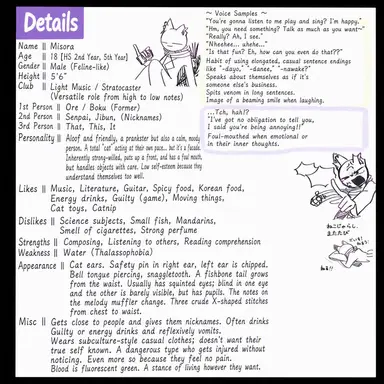 Details
Name || Misora
Age || 18 [HS 2nd Year, 5th Year]
Gender || Male (Feline-like)
Height || 5'6"
Club || Light Music / Stratocaster
(Versatile role from high to low notes)
1st Person || Ore / Boku (Former)
2nd Person || Senpai, Jibun, (Nicknames)
3rd Person || That, This, It
Personality || Aloof and friendly, a prankster but also a calm, moody
person. A total "cat" acting at their own pace.. but it's a facade.
Inherently strong-willed, puts up a front, and has a foul mouth,
but handles objects with care. Low self-esteem because they
understand themselves too well.
Likes || Music, Literature, Guitar, Spicy food, Korean food,
Energy drinks, Guilty (game), Moving things,
Cat toys, Catnip
Dislikes || Science subjects, Small fish, Mandarins,
Smell of cigarettes, Strong perfume
Strengths || Composing, Listening to others, Reading comprehension
Weakness || Water (Thalassophobia)
Appearance || Cat ears. Safety pin in right ear, left ear is chipped.
Bell tongue piercing, snaggletooth. A fishbone tail grows
from the waist. Usually has squinted eyes; blind in one eye
and the other is barely visible, but has pupils. The notes on
the melody muffler change. Three crude X-shaped stitches
from chest to waist.
Misc || Gets close to people and gives them nicknames. Often drinks
Guilty or energy drinks and reflexively vomits.
Wears subculture-style casual clothes; doesn't want their
true self known. A dangerous type who gets injured without
noticing. Even more so because they feel no pain.
Blood is fluorescent green. A stance of living however they want.
~ Voice Samples ~
"You're gonna listen to me play and sing? I'm happy."
"Hm, you need something? Talk as much as you want~"
"Really? Ah, I see."
"Nheehee... uhehe..."
"Is that fun? Eh, how can you even do that??"
Habit of using elongated, casual sentence endings
like "-dayo," "-danee," "-nawake?"
Speaks about themselves as if it's
someone else's business.
Spits venom in long sentences.
Image of a beaming smile when laughing.
...Tch, hah!?
"I've got no obligation to tell you,
I said you're being annoying!!"
Foul-mouthed when emotional or
in their inner thoughts.
ねこじゃらし、
またたび